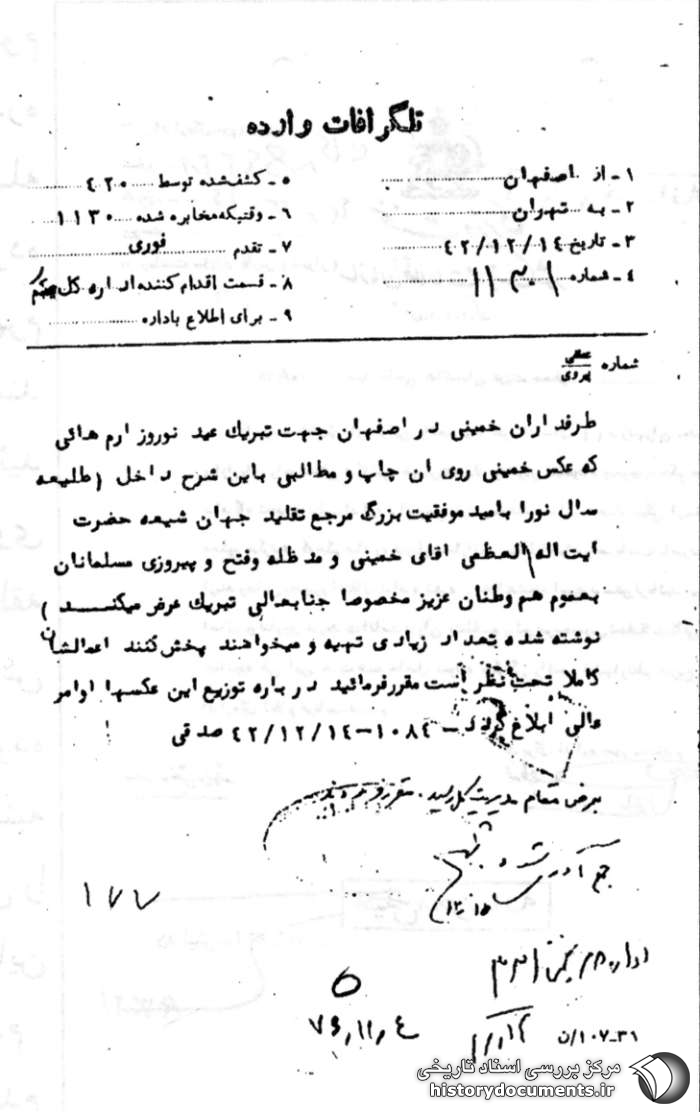 تلگرافات وارده
۱ ـ از اصفهان
۲ ـ به تهران
۳ ـ تاریخ ۴۲/۱۲/۱۴
۴ ـ شماره ۱۱۳۰۱
۵ ـ کشف شده توسط ۴۲۰
۶ ـ وقتیکه مخابره شده ۱۱۳۰
۷ ـ تقدم فوری
۸ ـ قسمت اقدام کننده اداره کل
۹ ـ برای اطلاع باداره
شماره
طرفداران خمینی در اصفهان جهت تبریک عید نوروز ارم هائی
که عکس خمینی روی ان چاپ و مطالبی باین شرح داخل (طلیعه
سال نورا بامید موفقیت بزرگ مرجع تقلید جهان شیعه حضرت
ایت اله العظمی اقای خمینی و مد ظله وفتح و پیروزی مسلمانان
بعموم هم وطنان عزیز مخصوصا جنابعالی تبریک عرض میکنند)
نوشته شده بتعداد زیادی تهیه و میخواهند پخش کنند اعمالشان
کاملا تحت نظر است مقررفرمائید در باره توزیع این عکسها اوامر
عالی ابلاغ گردد ـ ۱۰۸۴-۴۲/۱۲/۱۴ صدقی
بعرض مقام مدیریت کل رسید. مقرر فرمودند
جمع آوری شود
۱۷۷
اداره ۳۳۱
۵
۷۶/۱۱/۴
۳۱-۱۰۷/ن
مرکز بررسی اسناد تاریخی
historydocuments.ir